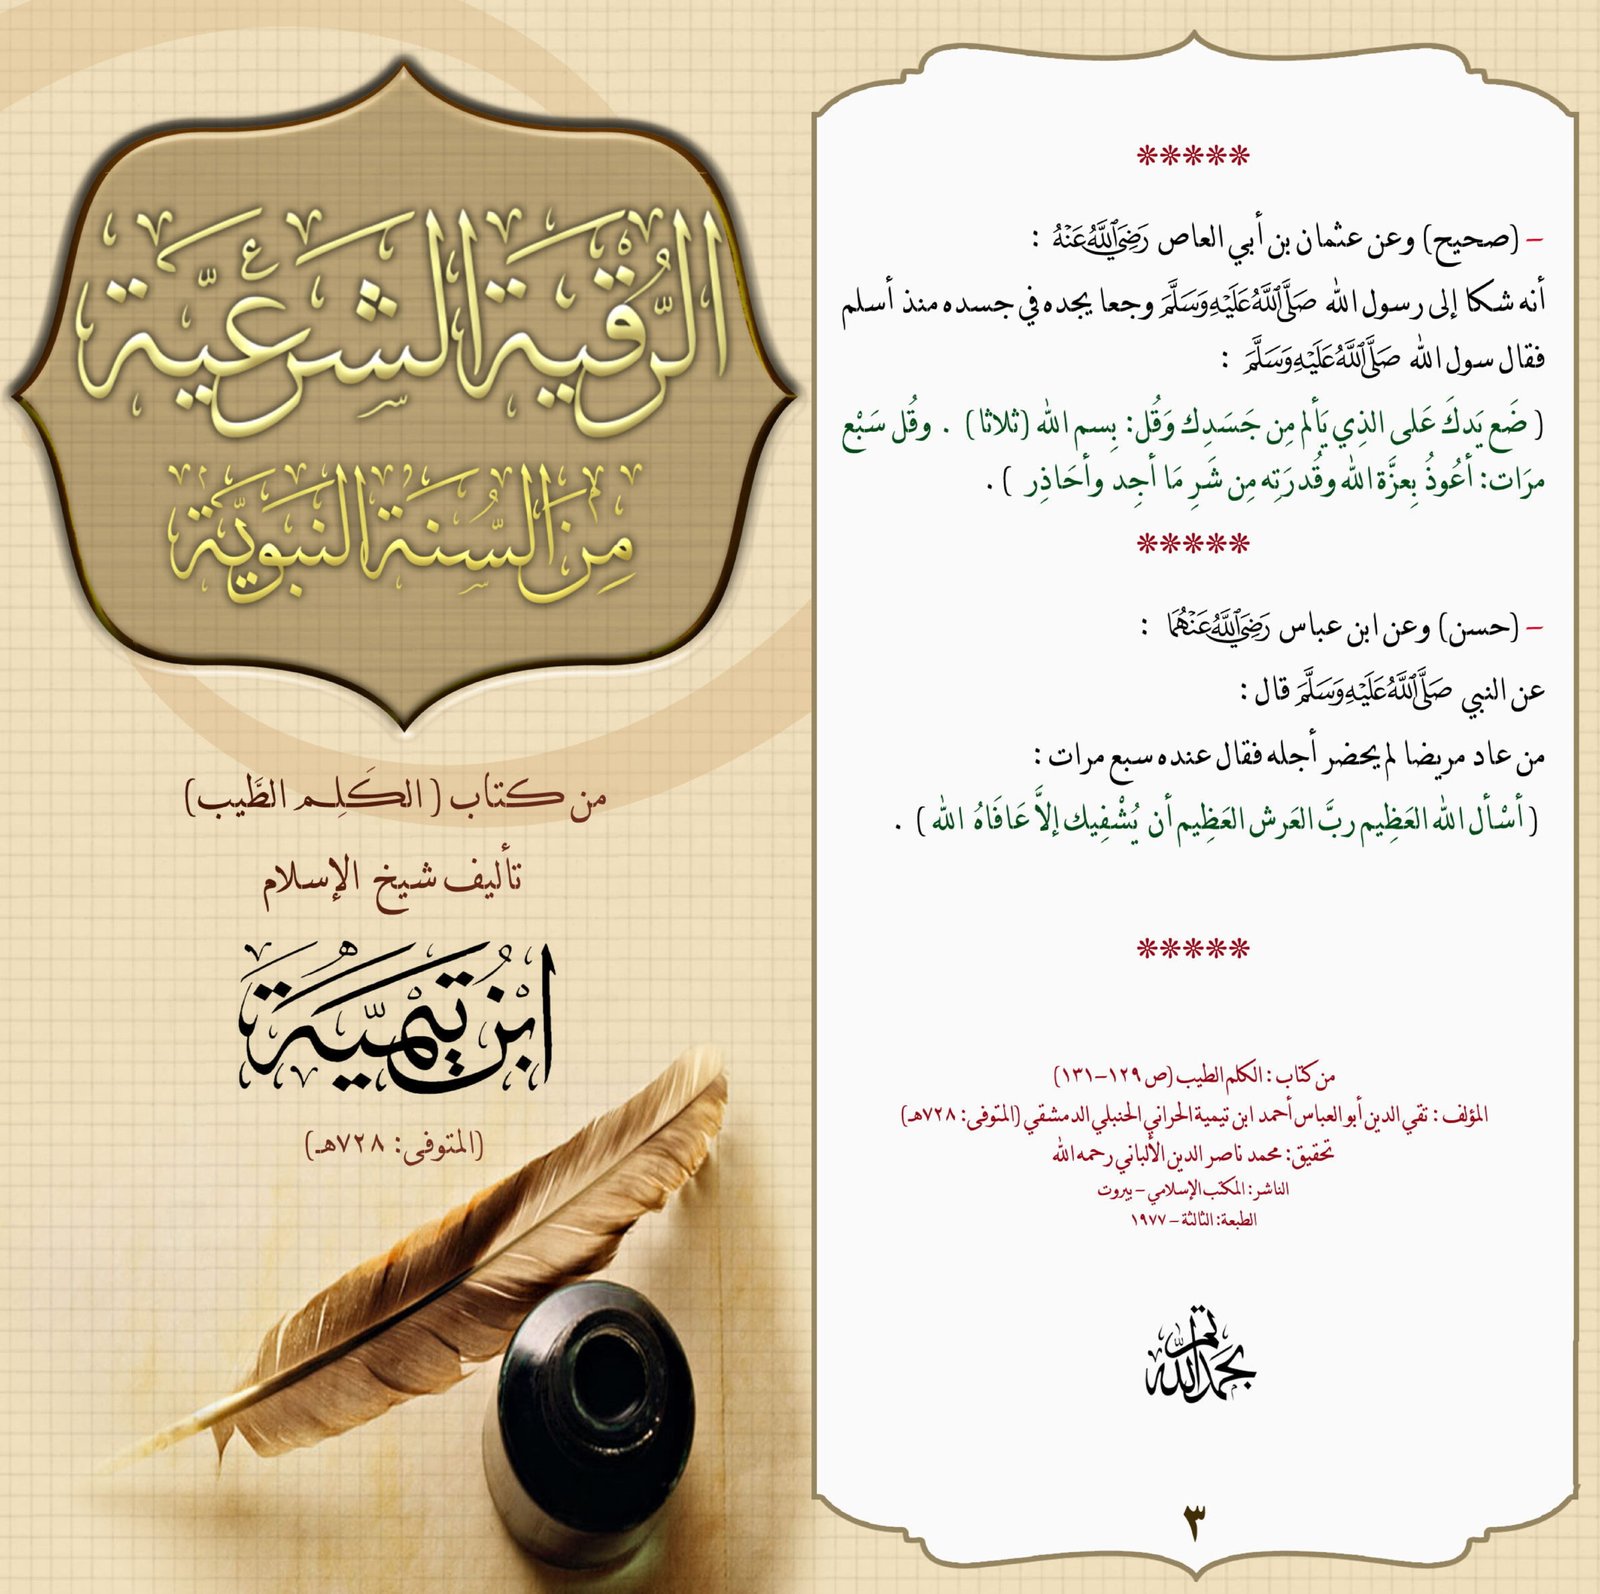 الرُّقْيَة الشَّرْعِيَّة
مِنَ السُّنَة النَّبَوِيَّة
من كتاب ( الكَلِـم الطَّيب)
تأليف شيخ الإسلام
ابْنُ تَيْمِيَّة
(المتوفى: ٧٢٨هـ)
*****
– (صحيح) وعن عثمان بن أبي العاص رَضِيَ ٱللَّهُ عَنْهُ :
أنه شكا إلى رسول الله صَلَّى ٱللَّهُ عَلَيْهِ وَسَلَّمَ وجعا يجده في جسده منذ أسلم
فقال سول الله صَلَّى ٱللَّهُ عَلَيْهِ وَسَلَّمَ :
( ضَع يَدكَ عَلى الذِي يَألم مِن جَسَدِك وَقُل: بِسم الله (ثلاثا) . وقُل سَبْع
مرَات: أعُوذُ بِعزَّة الله وقُدرَتِه مِن شَرِ مَا أجِد وأحَاذِر ) .
*****
– (حسن) وعن ابن عباس رَضِيَ ٱللَّهُ عَنْهُمَا :
عن النبي صَلَّى ٱللَّهُ عَلَيْهِ وَسَلَّمَ قال :
من عاد مريضا لم يحضر أجله فقال عنده سبع مرات :
( أسْأل الله العَظِيم ربَّ العَرش العَظِيم أن يُشْفِيك إلاَّ عَافَاهُ الله ) .
*****
من كتاب : الكلم الطيب (ص ١٢٩–١٣١)
المؤلف : تقي الدين أبو العباس أحمد ابن تيمية الحراني الحنبلي الدمشقي (المتوفى: ٧٢٨هـ)
تحقيق: محمد ناصر الدين الألباني رحمه الله
الناشر: المكتب الإسلامي – بيروت
الطبعة: الثالثة – ١٩٧٧
تم بحمد الله
٣